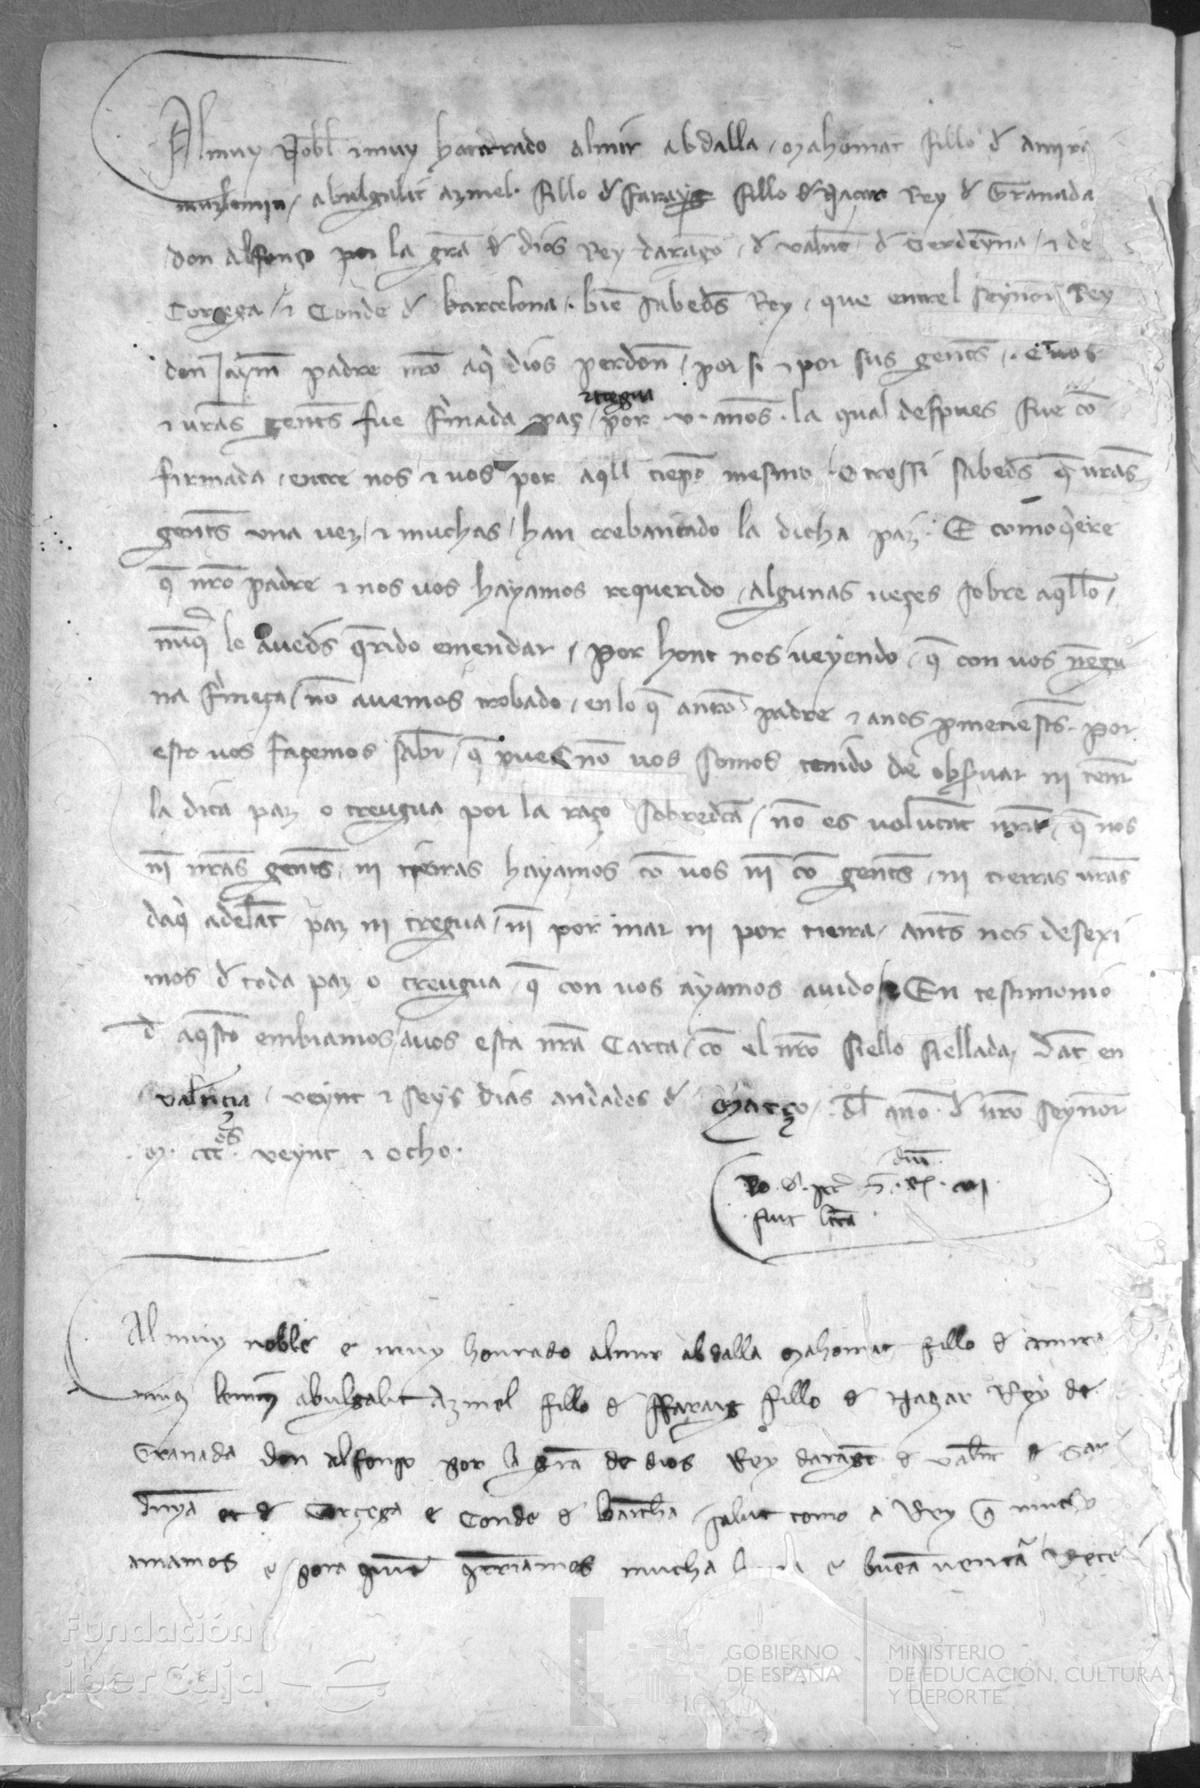 Al muy Nobl τ muy honrrado almir abdalla Mahomat fillo d amir
muzlemin abulgualit azmel fillo d farayg fillo d Naçar Rey d Granada
don Alfonso por la gra d dios Rey darago d valnc d Serdeyna τ de
Corçega τ Conde d barcelona bie sabeds Rey que entrel seynor Rey
don Jaym padre nro aq dios perdon por si τ por sus gents E vos
τ vras gents fue firmada paç τ tregua por v anos la qual despues fue co
firmada entre nos τ vos por aqll tiepo mesmo Otrossi sabeds q vras
gents una vez τ muchas han trebantado la dicha paz E como qere
q nro padre τ nos vos hayamos requerido algunas veçes sobre aqllo
nuq lo aveds qrido emendar por hont nos veyendo q con vos negu
na fimeça no avemos trobado en lo q a nro padre τ a nos pmetiests por
esto vos façemos sabr q pues no vos somos tenido de obsuar ni tenir
la dita paz o treugua por la raço sobredca no es voluntat nra q nos
ni nras gents ni tierras hayamos co vos ni co gents ni tierras vras
daq adelat paz ni tregua ni por mar ni por tierra ants nos desexi
mos d toda paz o treugua q con vos ayamos avido En testimonio
d aqsto embiamos a vos esta nra Carta co el nro siello siellada Dat en
valncia veynt τ seys dias andados d Março dl ano d nro seynor
M ccc os veynt τ ocho
fuit lcta
Al muy noble e muy honrado almir abdalla Mahomat fillo d amira
muz lemin abulgalit Azmel fillo d ffarayg fillo d Naçar Rey de
Granada don alfonso por la gra de dios Rey daragon d valnc e Sar
dinya et d Corçega e Conde d barchna salut como a Rey q mucho
amamos e pora quie qrriamos mucha e buena ventura
Fundación
iberCaja
GOBIERNO
DE ESPAÑA
MINISTERIO
DE EDUCACIÓN, CULTURA
Y DEPORTE